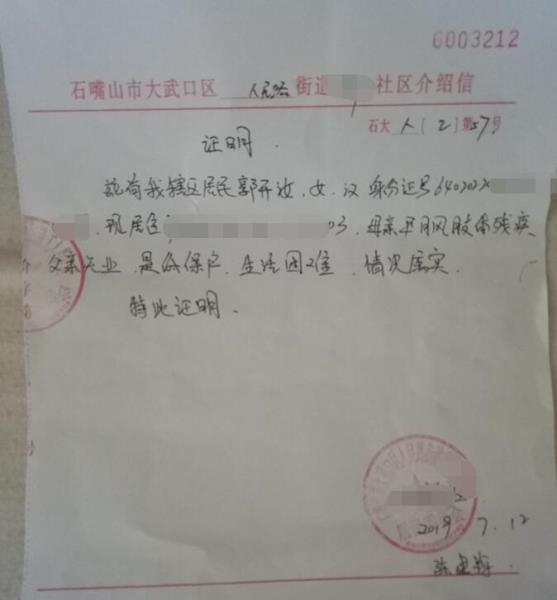 0003212
石嘴山市大武口区 人民路 街道 社区介绍信
石大 人 [ 2 ] 第 57 号
证明.
兹有我辖区居民郭开放, 女, 汉 身份证号640202
现居住 03, 母亲 肢体残疾
父亲失业, 是低保户, 生活困难, 情况属实.
特此证明.
2019 7. 12